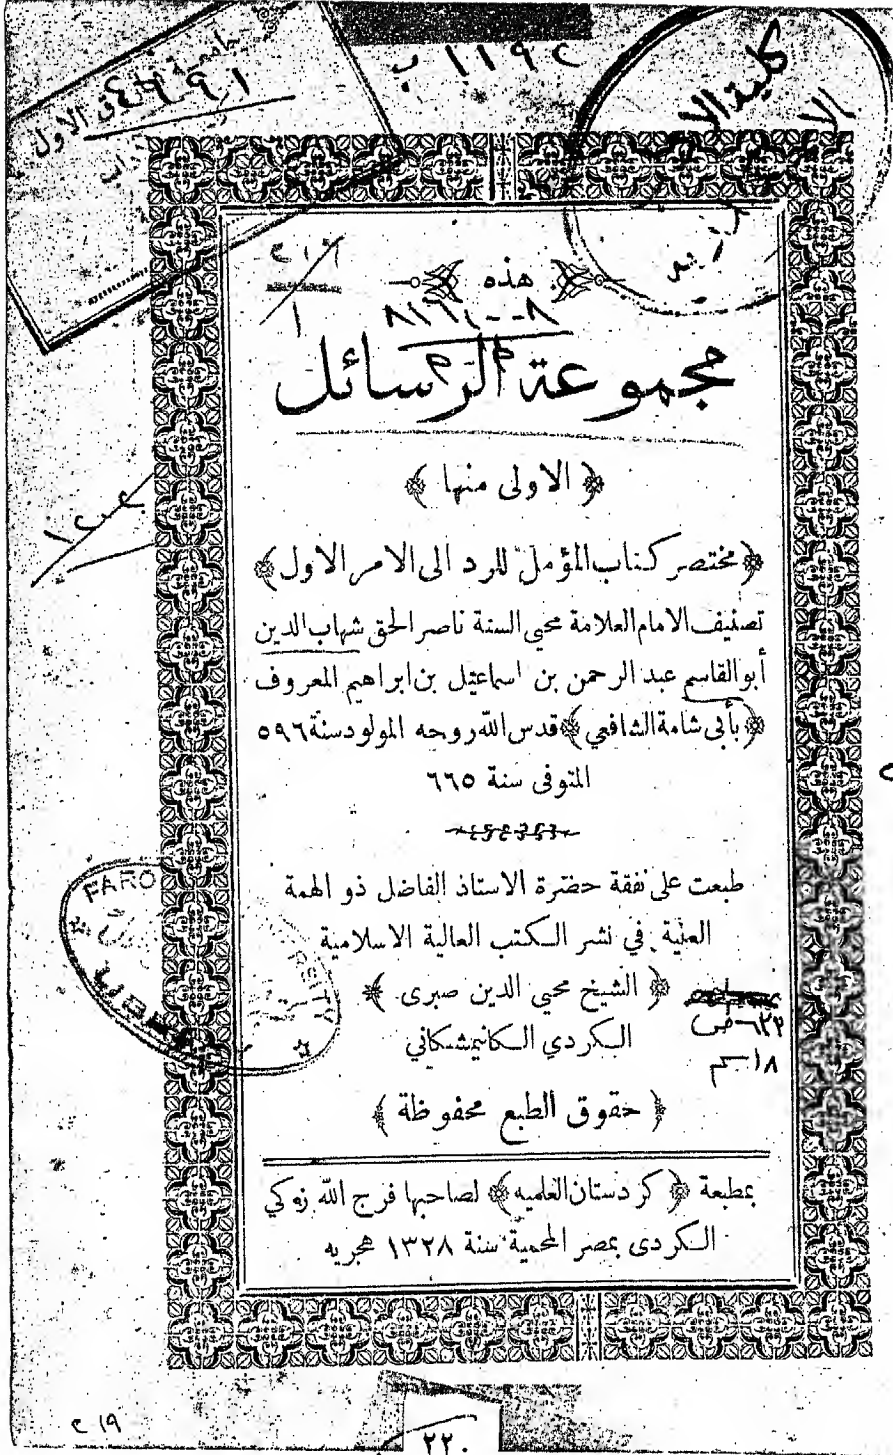 ١١٩٢ ب
كلية الا
الاول
هذه
مجموعة الرسائل
﴿ الاولى منها ﴾
﴿مختصر كتاب المؤمل للرد الى الامر الاول﴾
تصنيف الامام العلامة محيي السنة ناصر الحق شهاب الدين
أبو القاسم عبد الرحمن بن اسماعيل بن ابراهيم المعروف
﴿بأبى شامة الشافعي﴾ قدس الله روحه المولود سنة ٥٩٦
المتوفى سنة ٦٦٥
طبعت على نفقة حضرة الاستاذ الفاضل ذو الهمة
العلية في نشر الكتب العالية الاسلامية
﴿ الشيخ محيي الدين صبرى ﴾
الكردي الكانيمشكاني
٦٣٢ ص
١٨ سم
﴿ حقوق الطبع محفوظة ﴾
بمطبعة ﴿كردستان العلميه﴾ لصاحبها فرج الله زوكي
الكردى بمصر المحمية سنة ١٣٢٨ هجريه
FARO
RSITY
٢٢٠